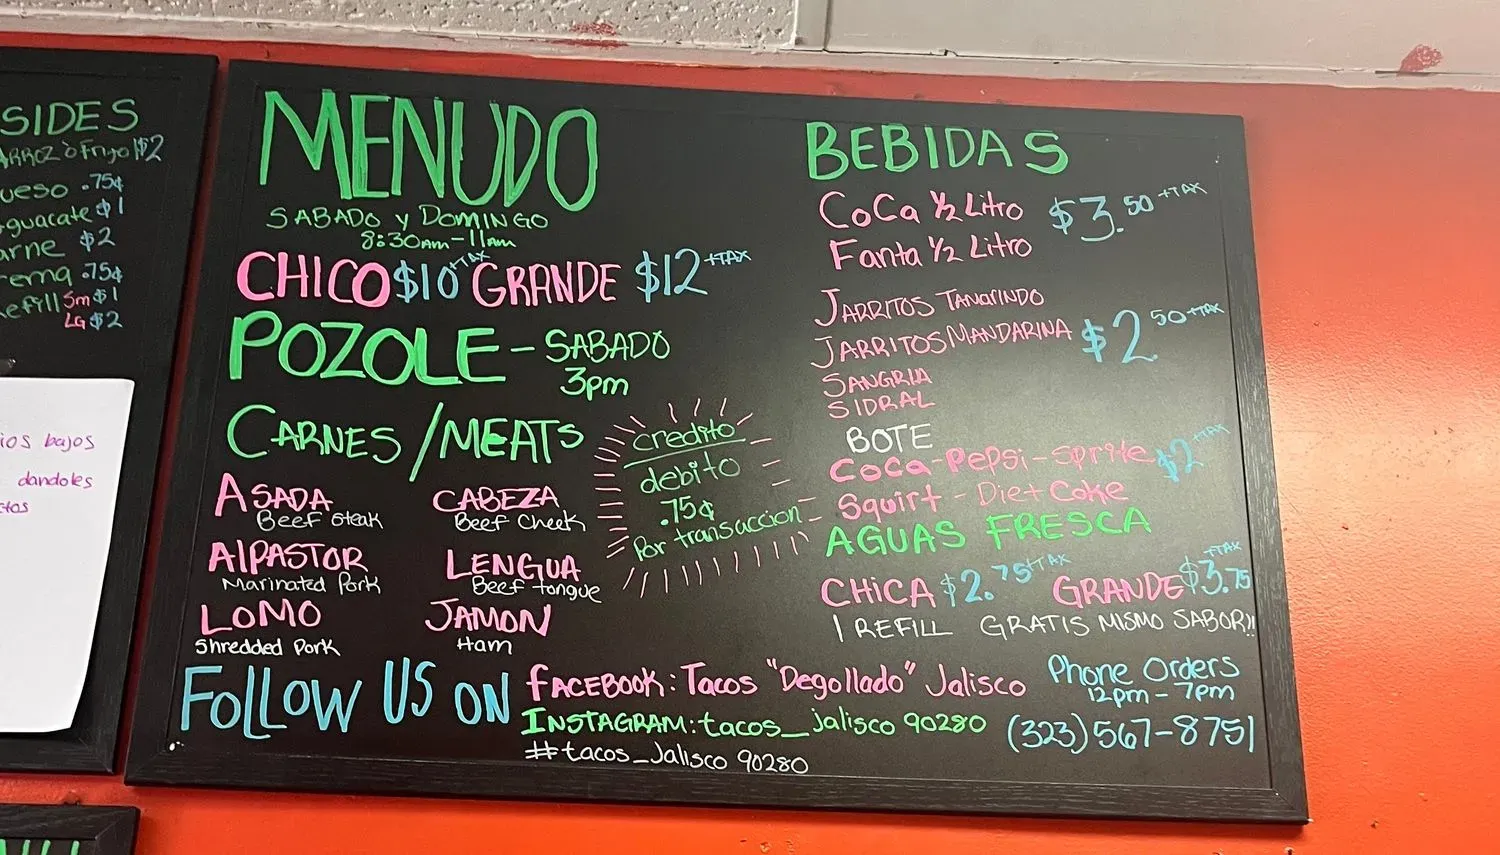 SIDES
ARROZ ò Frijol $2
ueso .75¢
guacate $1
arne $2
rema .75¢
efill Sm $1
LG $2
ios bajos
dandoles
MENUDO
SABADO y DOMINGO
8:30AM-11AM
CHICO $10 +TAX GRANDE $12 +TAX
POZOLE - SABADO
3pm
CARNES/MEATS
ASADA
Beef Steak
CABEZA
Beef Cheek
AlPASTOR
Marinated Pork
LENGUA
Beef tongue
LOMO
Shredded Pork
JAMON
Ham
credito
debito
.75¢
Por transaccion
BEBIDAS
CoCa ½ Litro $3.50 +TAX
Fanta ½ Litro
JARRITOS TAMARINDO
JARRITOS MANDARINA $2.50 +TAX
SANGRIA
SIDRAL
BOTE
Coca-Pepsi-Sprite $2 +TAX
Squirt - Diet Coke
AGUAS FRESCA
CHICA $2.75 +TAX GRANDE $3.75 +TAX
1 REFILL GRATIS MISMO SABOR!!
FOLLOW US ON
FACEBOOK: Tacos "Degollado" Jalisco
INSTAGRAM: tacos_jalisco 90280
#tacos_Jalisco 90280
Phone Orders
12pm - 7pm
(323) 567-8751